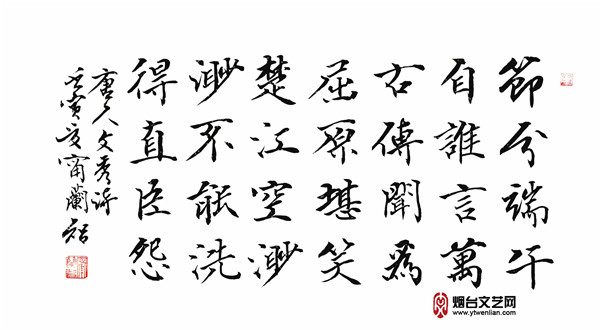 節分端午
自誰言萬
古傳聞為
屈原堪笑
楚江空渺
渺不能洗
得直臣怨
唐人文秀詩
壬寅夏甯蘭
烟台文艺网
www.ytwenlian.com